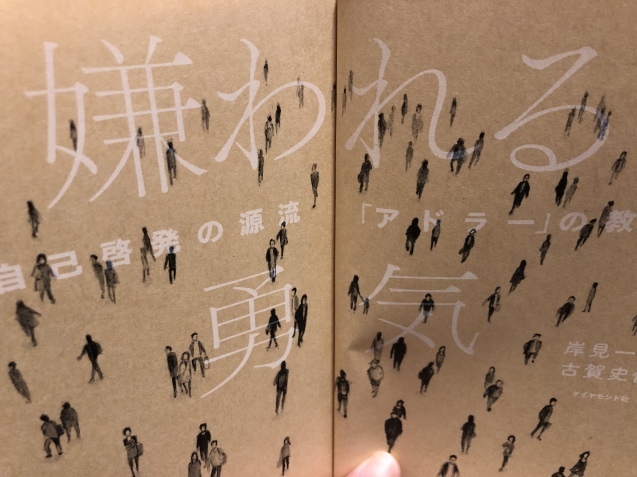 嫌われる
自己啓発の源流「アドラー」の教
勇気
岸見一
古賀史
ダイヤモンド社